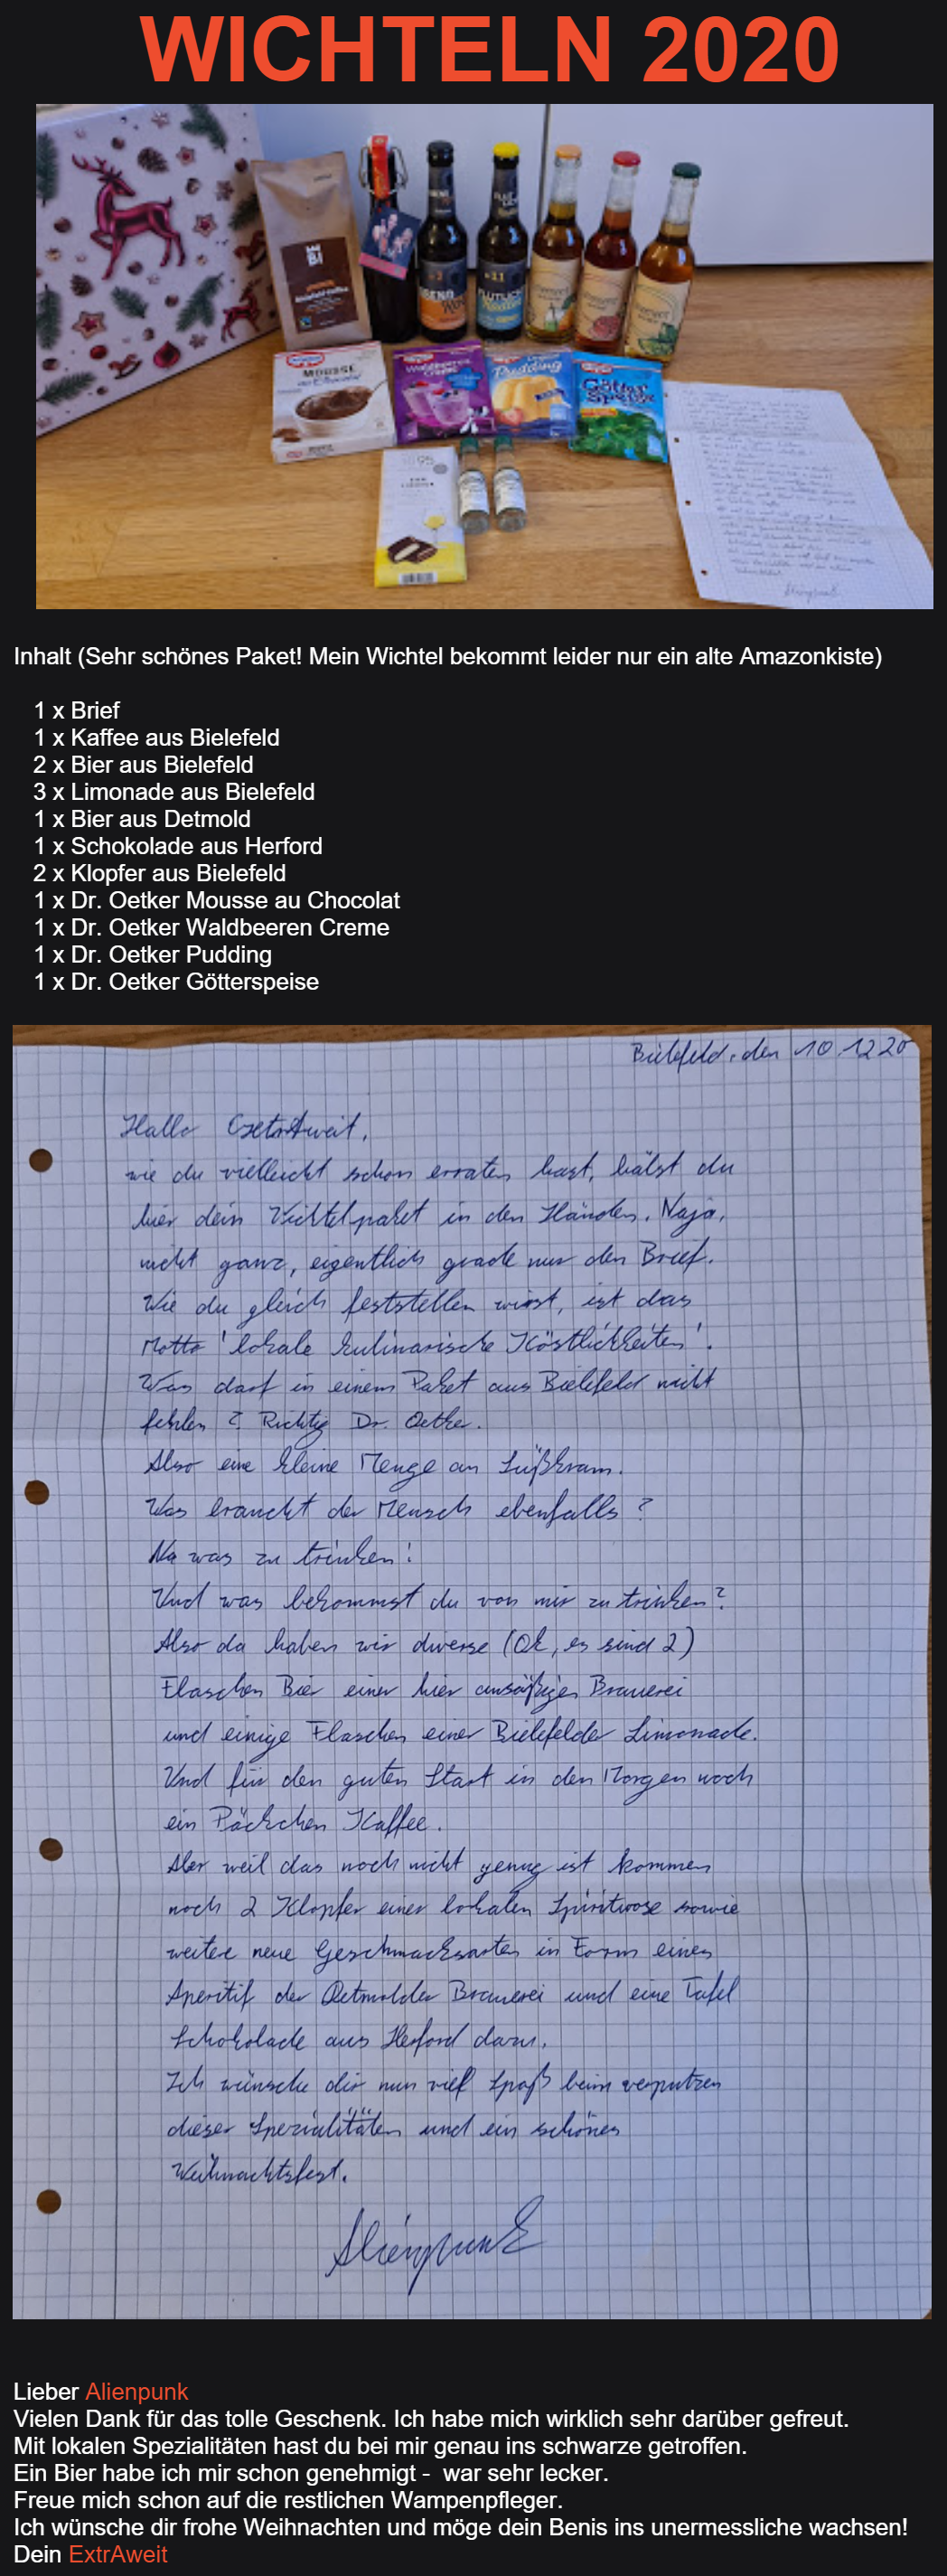 WICHTELN 2020
MOUSSE
au Chocolat
Waldbeeren
Creme
Pudding
Götter
Speise
Inhalt (Sehr schönes Paket! Mein Wichtel bekommt leider nur ein alte Amazonkiste)
1 x Brief
1 x Kaffee aus Bielefeld
2 x Bier aus Bielefeld
3 x Limonade aus Bielefeld
1 x Bier aus Detmold
1 x Schokolade aus Herford
2 x Klopfer aus Bielefeld
1 x Dr. Oetker Mousse au Chocolat
1 x Dr. Oetker Waldbeeren Creme
1 x Dr. Oetker Pudding
1 x Dr. Oetker Götterspeise
Bielefeld, den 10.12.20
Hallo ExtrAweit,
wie du vielleicht schon erraten hast, hälst du
hier dein Wichtelpaket in den Händen. Naja,
nicht ganz, eigentlich grade nur den Brief.
Wie du gleich feststellen wirst, ist das
Motto 'lokale kulinarische Köstlichkeiten'.
Was darf in einem Paket aus Bielefeld nicht
fehlen? Richtig Dr. Oetker.
Also eine kleine Menge an Süßkram.
Was braucht der Mensch ebenfalls?
Na was zu trinken!
Und was bekommst du von mir zu trinken?
Also da haben wir diverse (Ok, es sind 2)
Flaschen Bier einer hier ansäßigen Brauerei
und einige Flaschen einer Bielefelder Limonade.
Und für den guten Start in den Morgen noch
ein Päckchen Kaffee.
Aber weil das noch nicht genug ist kommen
noch 2 Klopfer einer lokalen Spirituose sowie
weitere neue Geschmacksarten in Form eines
Aperitif der Detmolder Brauerei und eine Tafel
Schokolade aus Herford dazu.
Ich wünsche dir nun viel Spaß beim verputzen
dieser Spezialitäten und ein schönes
Weihnachtsfest.
Alienpunk
Lieber Alienpunk
Vielen Dank für das tolle Geschenk. Ich habe mich wirklich sehr darüber gefreut.
Mit lokalen Spezialitäten hast du bei mir genau ins schwarze getroffen.
Ein Bier habe ich mir schon genehmigt - war sehr lecker.
Freue mich schon auf die restlichen Wampenpfleger.
Ich wünsche dir frohe Weihnachten und möge dein Benis ins unermessliche wachsen!
Dein ExtrAweit